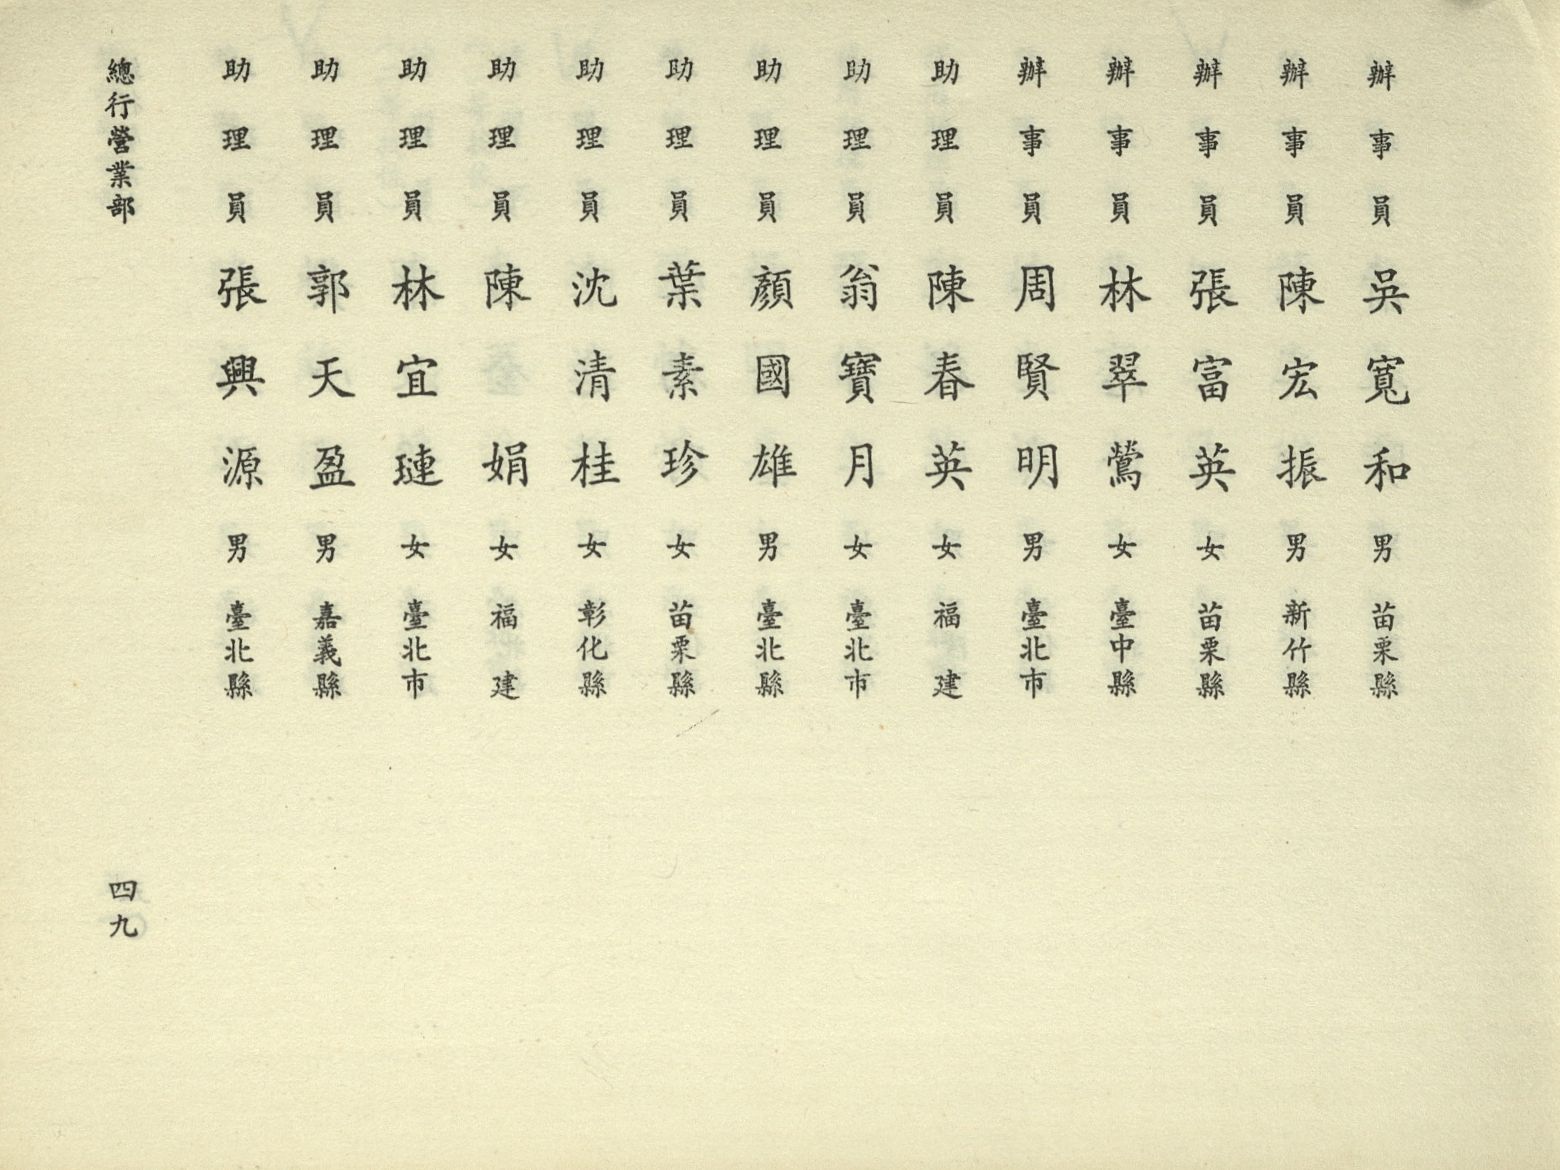 辦事員 吳寬和 男 苗栗縣
辦事員 陳宏振 男 新竹縣
辦事員 張富英 女 苗栗縣
辦事員 林翠鶯 女 臺中縣
辦事員 周賢明 男 臺北市
助理員 陳春英 女 福建
助理員 翁寶月 女 臺北市
助理員 顏國雄 男 臺北縣
助理員 葉素珍 女 苗栗縣
助理員 沈清桂 女 彰化縣
助理員 陳娟 女 福建
助理員 林宜璉 女 臺北市
助理員 郭天盈 男 嘉義縣
助理員 張興源 男 臺北縣
總行營業部
四九